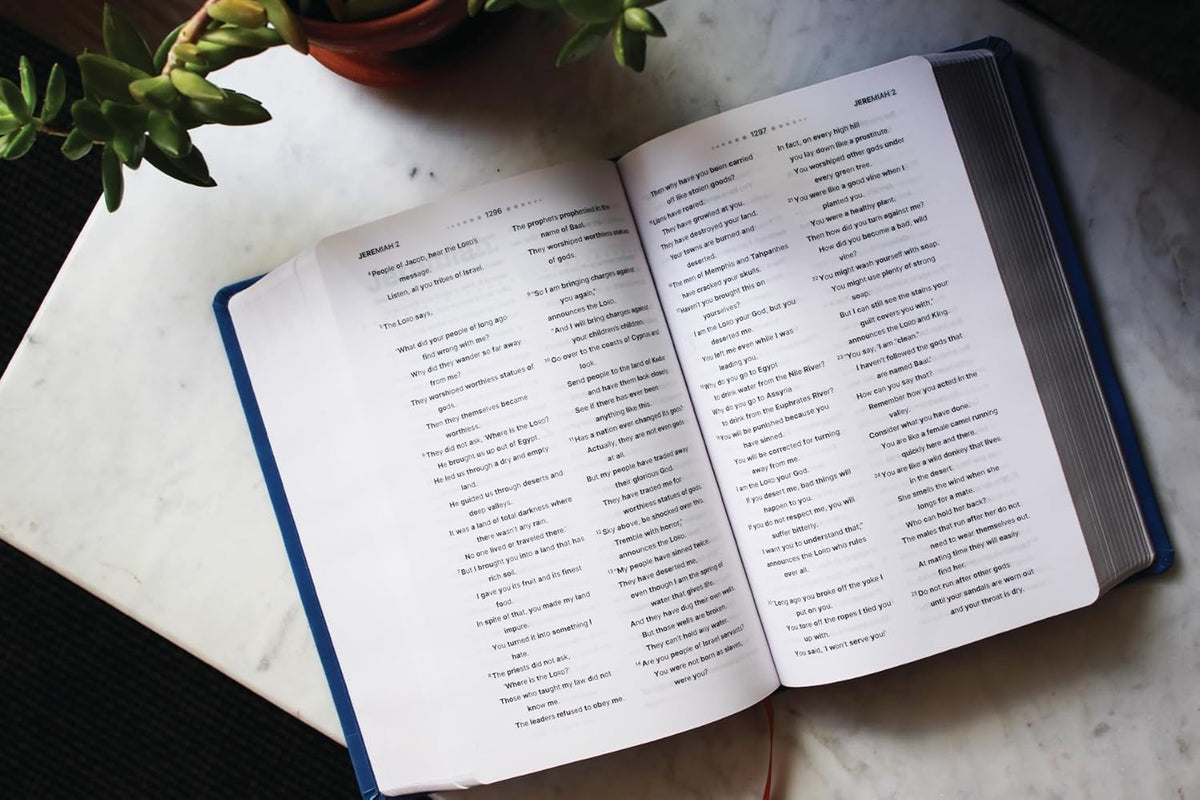 1296
JEREMIAH 2
4 People of Jacob, hear the LORD's
message.
Listen, all you tribes of Israel.
5 The LORD says,
"What did your people of long ago
find wrong with me?
Why did they wander so far away
from me?
They worshiped worthless statues of
gods.
Then they themselves became
worthless.
6 They did not ask, 'Where is the LORD?
He brought us up out of Egypt.
He led us through a dry and empty
land.
He guided us through deserts and
deep valleys.
It was a land of total darkness where
there wasn't any rain.
No one lived or traveled there.'
7 But I brought you into a land that has
rich soil.
I gave you its fruit and its finest
food.
In spite of that, you made my land
impure.
You turned it into something I
hate.
8 The priests did not ask,
'Where is the LORD?'
Those who taught my law did not
know me.
The leaders refused to obey me.
The prophets prophesied in the
name of Baal.
They worshiped worthless statues
of gods.
9 "So I am bringing charges against
you again,"
announces the LORD.
"And I will bring charges against
your children's children.
10 Go over to the coasts of Cyprus and
look.
Send people to the land of Kedar
and have them look closely.
See if there has ever been
anything like this.
11 Has a nation ever changed its gods?
Actually, they are not even gods
at all.
But my people have traded away
their glorious God.
They have traded me for
worthless statues of gods.
12 Sky above, be shocked over this.
Tremble with horror,"
announces the LORD.
13 "My people have sinned twice.
They have deserted me,
even though I am the spring of
water that gives life.
And they have dug their own wells.
But those wells are broken.
They can't hold any water.
14 Are you people of Israel servants?
You were not born as slaves,
were you?
1297
JEREMIAH 2
Then why have you been carried
off like stolen goods?
15 Lions have roared.
They have growled at you.
They have destroyed your land.
Your towns are burned and
deserted.
16 The men of Memphis and Tahpanhes
have cracked your skulls.
17 Haven't you brought this on
yourselves?
I am the LORD your God, but you
deserted me.
You left me even while I was
leading you.
18 Why do you go to Egypt
to drink water from the Nile River?
Why do you go to Assyria
to drink from the Euphrates River?
19 You will be punished because you
have sinned.
You will be corrected for turning
away from me.
I am the LORD your God.
If you desert me, bad things will
happen to you.
If you do not respect me, you will
suffer bitterly.
I want you to understand that,"
announces the LORD who rules
over all.
20 "Long ago you broke off the yoke I
put on you.
You tore off the ropes I tied you
up with.
You said, 'I won't serve you!'
In fact, on every high hill
you lay down like a prostitute.
You worshiped other gods under
every green tree.
21 You were like a good vine when I
planted you.
You were a healthy plant.
Then how did you turn against me?
How did you become a bad, wild
vine?
22 You might wash yourself with soap.
You might use plenty of strong
soap.
But I can still see the stains your
guilt covers you with,"
announces the LORD and King.
23 "You say, 'I am "clean."
I haven't followed the gods that
are named Baal.'
How can you say that?
Remember how you acted in the
valley.
Consider what you have done.
You are like a female camel running
quickly here and there.
24 You are like a wild donkey that lives
in the desert.
She smells the wind when she
longs for a mate.
Who can hold her back?
The males that run after her do not
need to wear themselves out.
At mating time they will easily
find her.
25 Do not run after other gods
until your sandals are worn out
and your throat is dry.